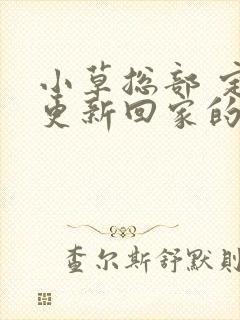 小草总部
更新回家的
查尔斯舒默則